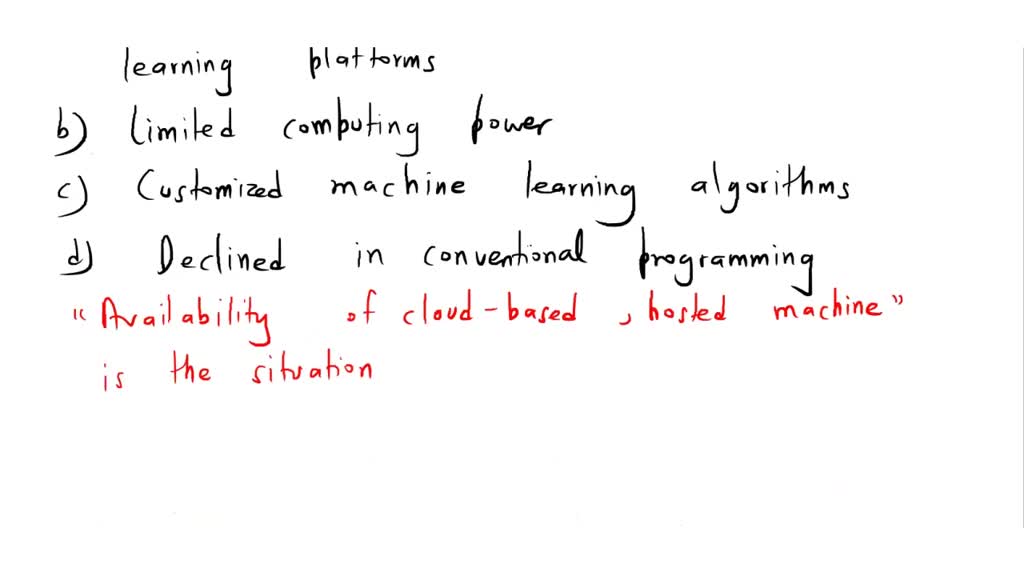 learning platforms
b) Limited computing power
c) Customized machine learning algorithms
d) Declined in conventional programming
"Availability of cloud-based, hosted machine"
is the situation